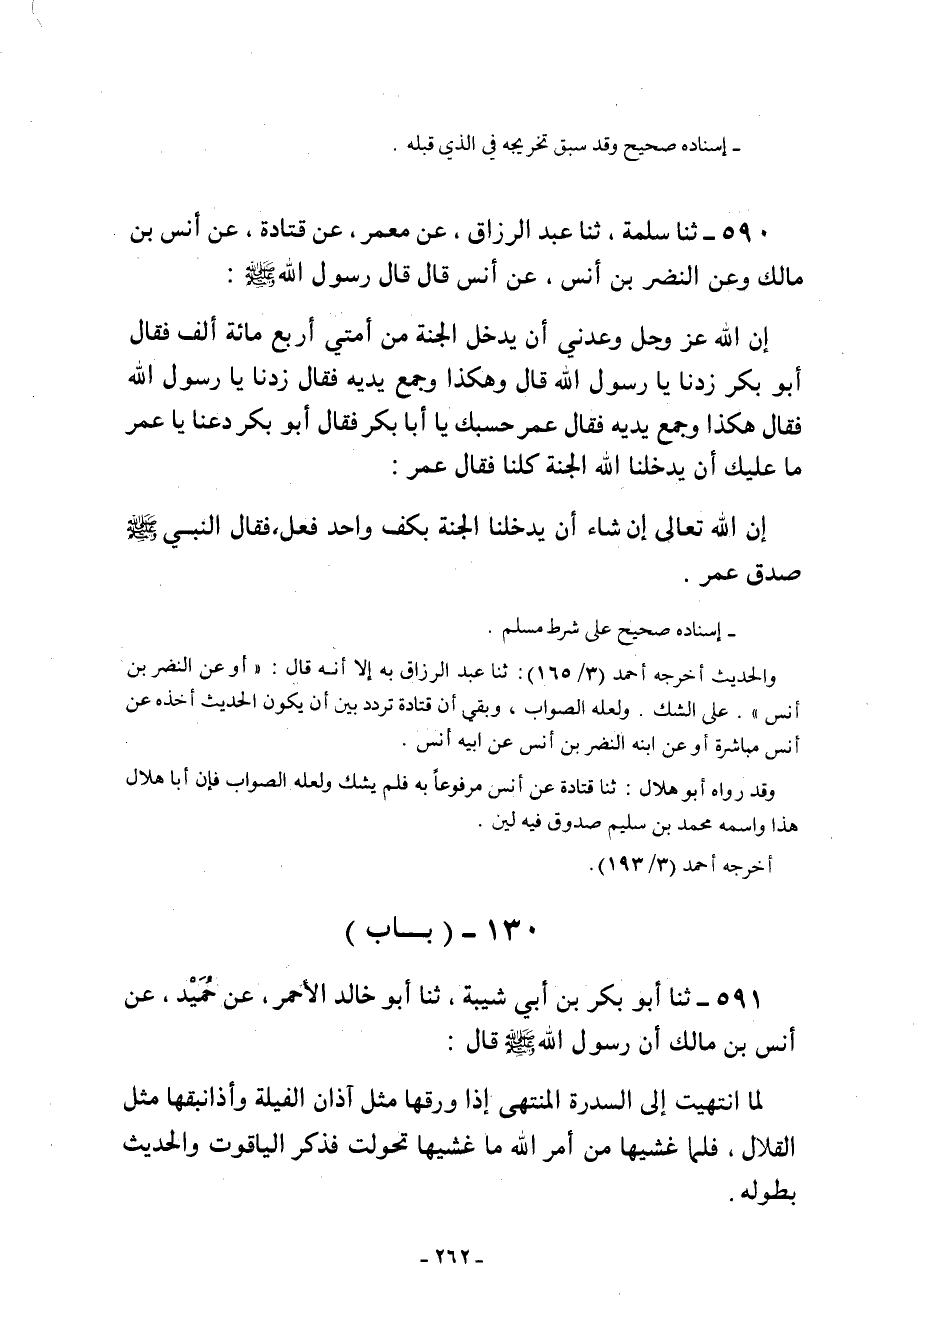 ـ إسناده صحيح وقد سبق تخريجه في الذي قبله .
٥٩٠ ـ ثنا سلمة ، ثنا عبد الرزاق ، عن معمر ، عن قتادة ، عن أنس بن
مالك وعن النضر بن أنس ، عن أنس قال قال رسول الله ﷺ :
إن الله عز وجل وعدني أن يدخل الجنة من أمتي أربع مائة ألف فقال
أبو بكر زدنا يا رسول الله قال وهكذا وجمع يديه فقال زدنا يا رسول الله
فقال هكذا وجمع يديه فقال عمر حسبك يا أبا بكر فقال أبو بكر دعنا يا عمر
ما عليك أن يدخلنا الله الجنة كلنا فقال عمر :
إن الله تعالى إن شاء أن يدخلنا الجنة بكف واحد فعل،فقال النبي ﷺ
صدق عمر .
ـ إسناده صحيح على شرط مسلم .
والحديث أخرجه أحمد (٣/ ١٦٥): ثنا عبد الرزاق به إلا أنه قال : « أو عن النضر بن
أنس » . على الشك . ولعله الصواب ، وبقي أن قتادة تردد بين أن يكون الحديث أخذه عن
أنس مباشرة أو عن ابنه النضر بن أنس عن ابيه أنس .
وقد رواه أبو هلال : ثنا قتادة عن أنس مرفوعاً به فلم يشك ولعله الصواب فإن أبا هلال
هذا واسمه محمد بن سليم صدوق فيه لين .
أخرجه أحمد (٣/ ١٩٣).
١٣٠ ـ ( بــاب )
٥٩١ ـ ثنا أبو بكر بن أبي شيبة ، ثنا أبو خالد الأحمر ، عن حُمَيْد ، عن
أنس بن مالك أن رسول الله ﷺ قال :
لما انتهيت إلى السدرة المنتهى إذا ورقها مثل آذان الفيلة وأذانبقها مثل
القلال ، فلما غشيها من أمر الله ما غشيها تحولت فذكر الياقوت والحديث
بطوله .
ـ ٢٦٢ ـ